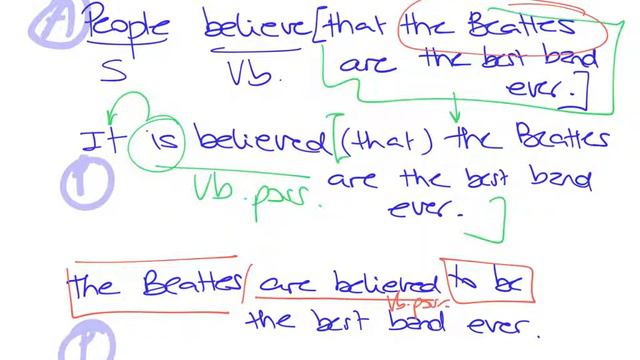 A People believe [that the Beatles
S Vb. are the best band
ever.]
It is believed [(that) the Beatles
P Vb. pass. are the best band
ever.]
the Beatles are believed to be
Vb. pass.
P the best band ever.